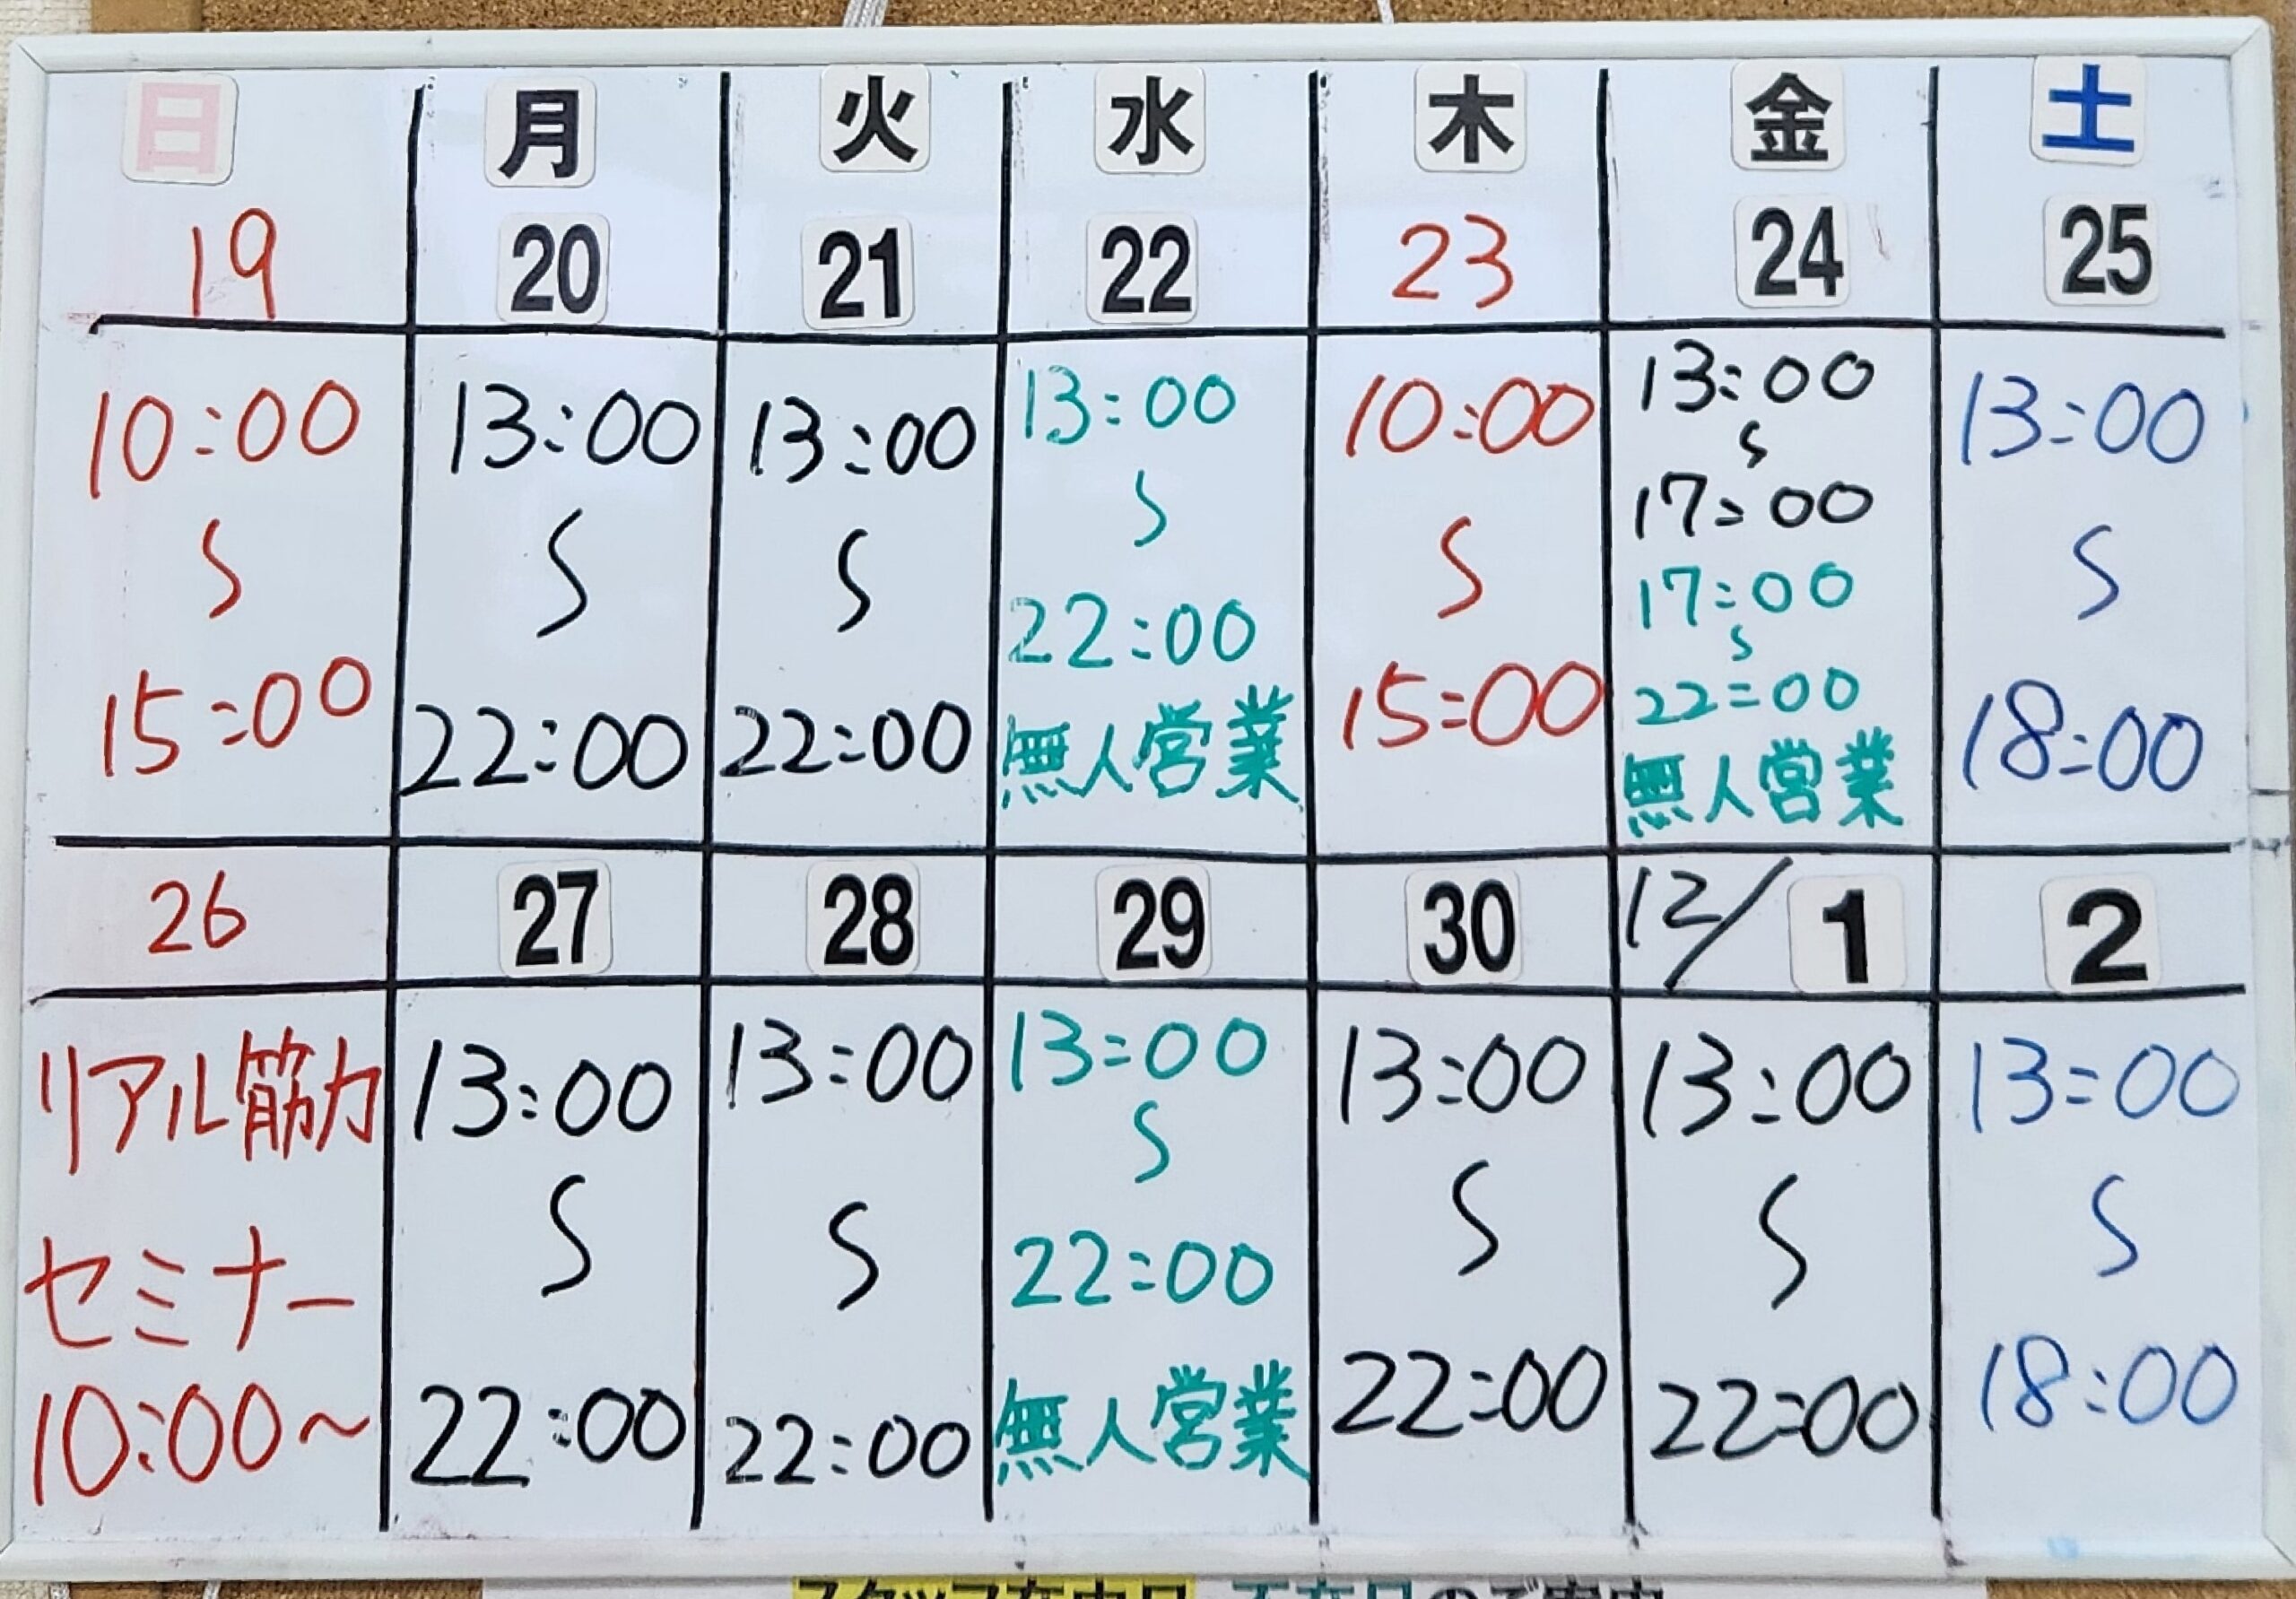 日 月 火 水 木 金 土
19 20 21 22 23 24 25
10:00
S
15:00
13:00
S
22:00
13:00
S
22:00
13:00
S
22:00
無人営業
10:00
S
15:00
13:00
S
17:00
17:00
S
22:00
無人営業
13:00
S
18:00
26 27 28 29 30 12/1 2
リアル筋力
セミナー
10:00~
13:00
S
22:00
13:00
S
22:00
13:00
S
22:00
無人営業
13:00
S
22:00
13:00
S
22:00
13:00
S
18:00